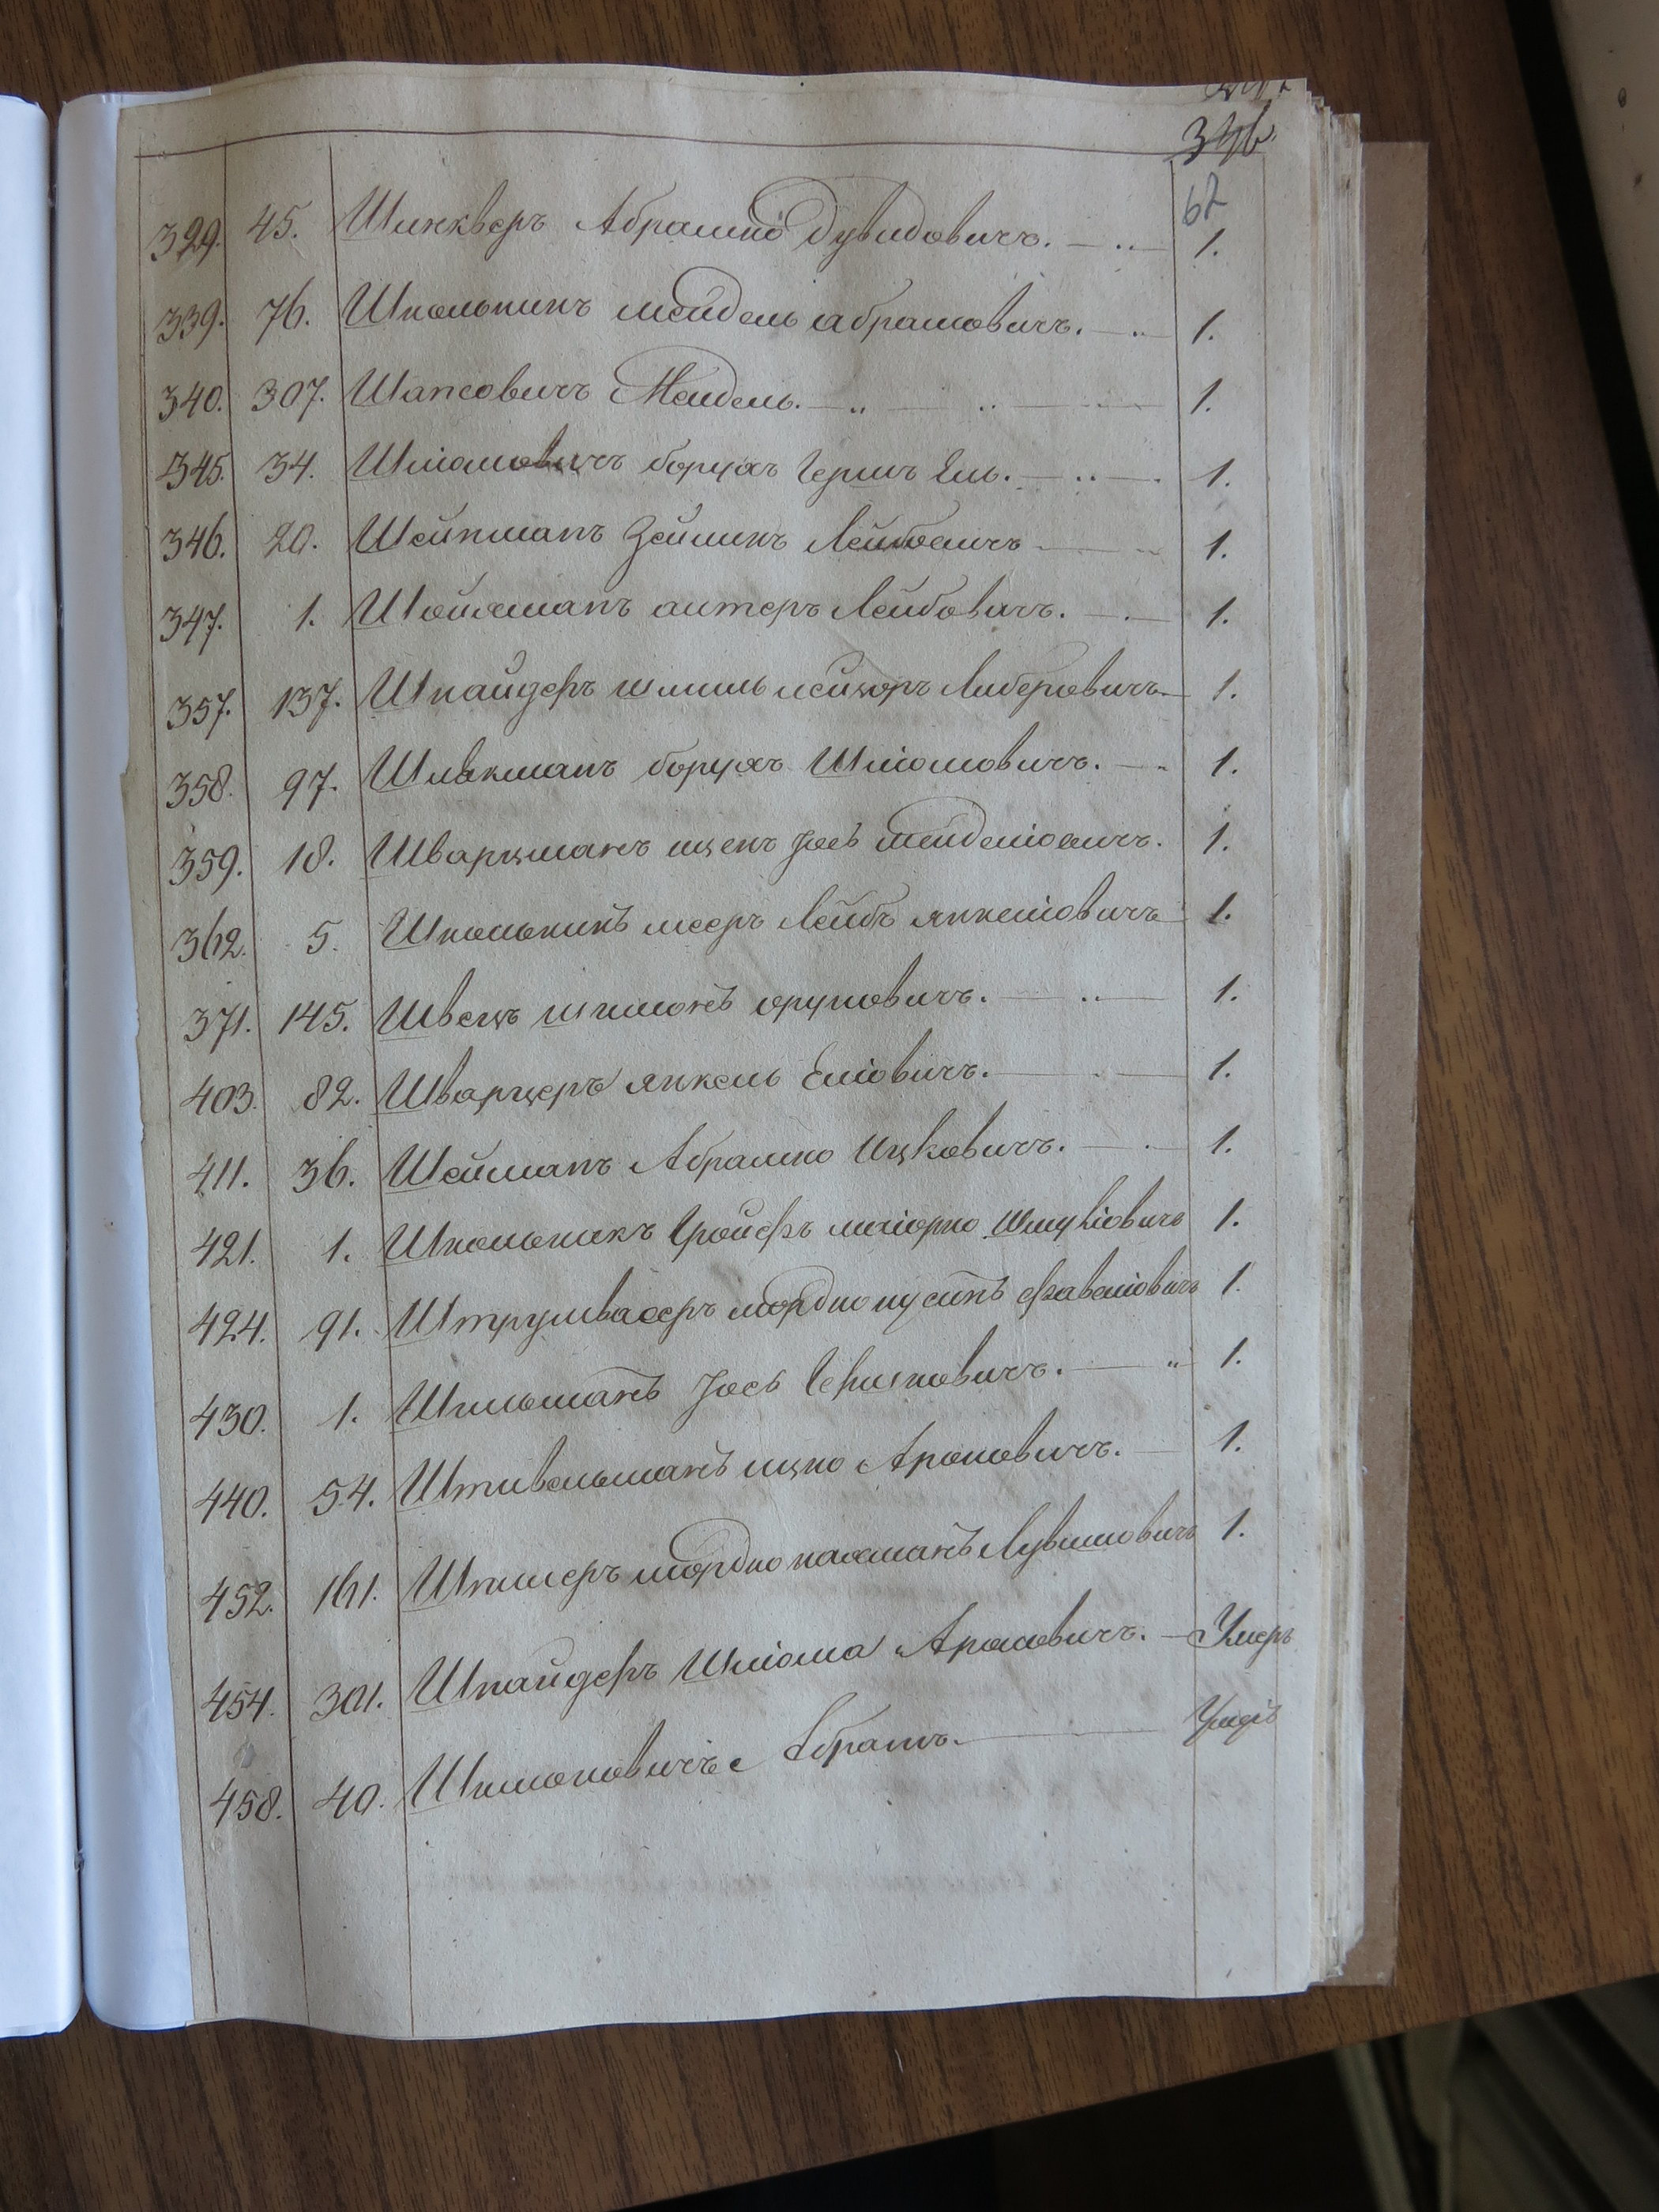 346
62
329. 45. Шинкверъ Абрамко Дувидовичъ. 1.
339. 76. Школьникъ мендель абрамовичъ. 1.
340. 307. Шапсовичъ Мендель. 1.
345. 34. Шліомовичъ борухъ Гершъ Ель. 1.
346. 20. Шейнманъ Зейликъ Лейбовичъ 1.
347. 1. Шойхманъ антеръ Лейбовичъ. 1.
357. 137. Шнайдеръ шмиль лейзоръ Либеровичъ 1.
358. 97. Шлякманъ борухъ Шліомовичъ. 1.
359. 18. Шварцманъ ицекъ Іось менделіовичъ. 1.
362. 5. Школьникъ мееръ Лейбъ янкеліовичъ 1.
371. 145. Швецъ шимонъ оруновичъ. 1.
403. 82. Шварцеръ янкель Еліовичъ. 1.
411. 36. Шейманъ Абрамко Ицковичъ. 1.
421. 1. Школьникъ Шмуліовичъ 1.
424. 91. Штрумвасеръ мордко 1.
430. 1. Шпильманъ Іось Гершковичъ. 1.
440. 54. Штивельманъ ицко Ароновичъ. 1.
452. 161. мордко нахманъ 1.
454. 301. Шнайдеръ Шліома Ароновичъ. Умеръ
458. 40. Шимоновичъ Абрамъ.